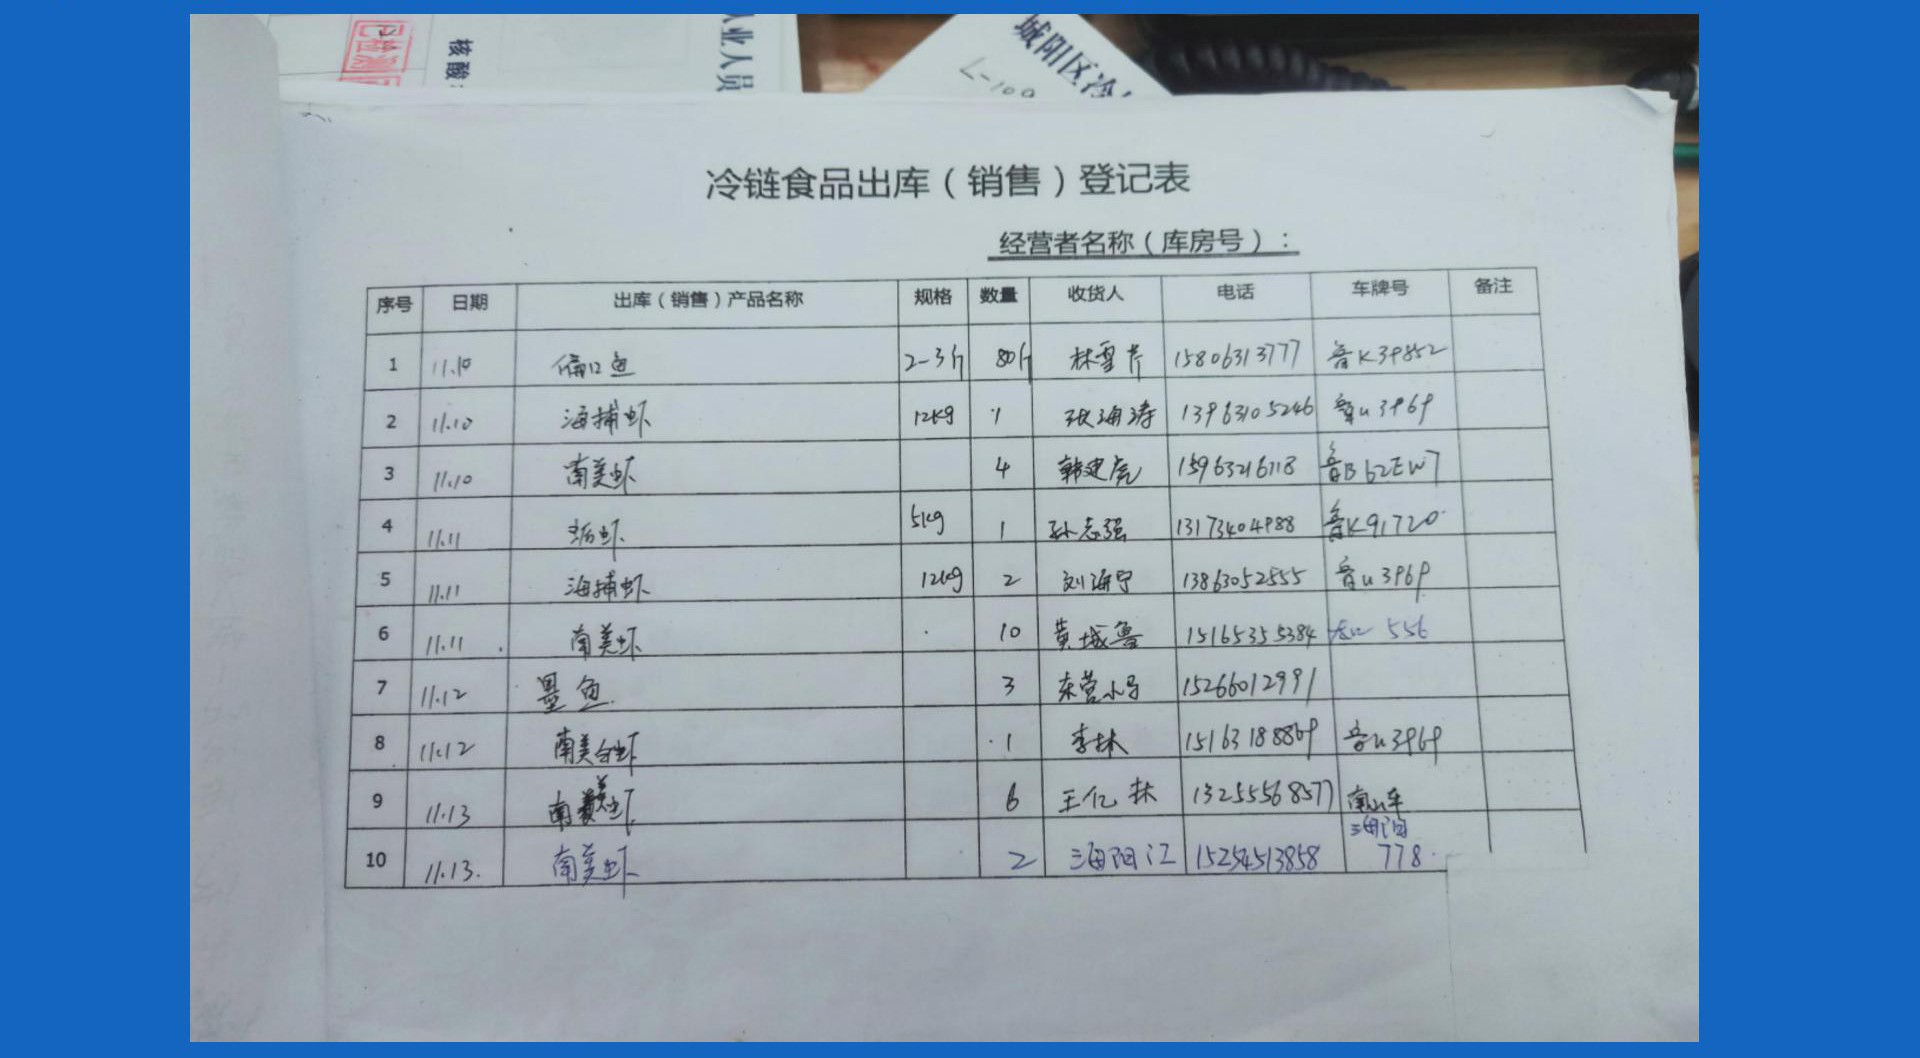 核酸
业人员
城阳区冷
L-109
冷链食品出库（销售）登记表
经营者名称（库房号）：
序号 日期 出库（销售）产品名称 规格 数量 收货人 电话 车牌号 备注
1 11.10 偏口鱼 2-3斤 80斤 林雪芹 15806313777 鲁K39852
2 11.10 海捕虾 12kg 1 张海涛 13963105246 鲁u3969
3 11.10 南美虾 4 韩建虎 15963216118 鲁B62EW7
4 11.11 虾 5kg 1 孙志强 13173404988 鲁K91720
5 11.11 海捕虾 12kg 2 刘海宁 13863052555 鲁u3969
6 11.11 南美虾 10 黄城鲁 15165355384 龙口 556
7 11.12 墨鱼 3 东营小马 15266012991
8 11.12 南美白虾 1 李林 15163188869 鲁u3969
9 11.13 南美虾 6 王亿林 13255568577 南山车
10 11.13. 南美虾 2 海阳江 15254513858 海阳 778